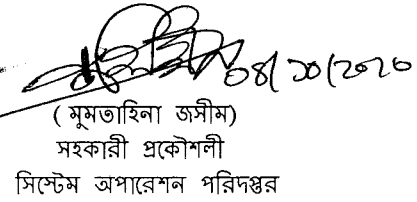 ০৪/১০/২০২০
( মুমতাহিনা জসীম)
সহকারী প্রকৌশলী
সিস্টেম অপারেশন পরিদপ্তর